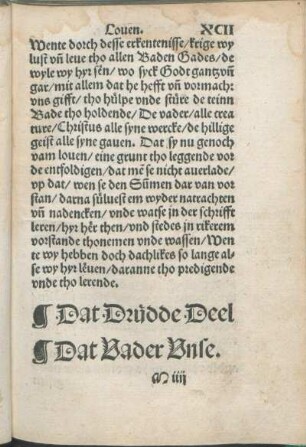 Loven. XCII
Wente dorch desse erkentenisse/krige wy
lust vñ leve tho allen Baden Gades/de
wyle wy hyr sēn/wo syck Godt gantz vñ
gar/mit allem dat he hefft vñ vormach:
vns gifft/tho hülpe vnde stüre de teinn
Bade tho holdende/De vader/alle crea
ture/Christus alle syne wercke/de hillige
geist alle syne gauen. Dat sy nu genoch
vam louen/eine grunt tho leggende vor
de entfoldigen/dat mē se nicht auerlade/
vp dat/wen se den Süm̄en dar van vor
stan/darna sülvest em wyder natrachten
vñ nadencken/vnde watse in der schrifft
leren/hyr hēr then/vnd stedes in rikerem
vorstande thonemen vnde wassen/Wen
te wy hebben doch dachlikes so lange al
se wy hyr lēuen/daranne tho predigende
vnde tho lerende.
¶ Dat Drüdde Deel
¶ Dat Vader Vnse.
M iiij